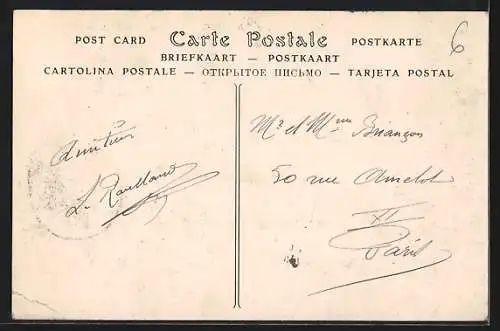 POST CARD Carte Postale POSTKARTE
BRIEFKAART — POSTKAART
CARTOLINA POSTALE — ОТКРЫТОЕ ПИСЬМО — TARJETA POSTAL
6
Amitiés
L.
Mr et Mme Briançon
50 rue Amelot
XI
Paris